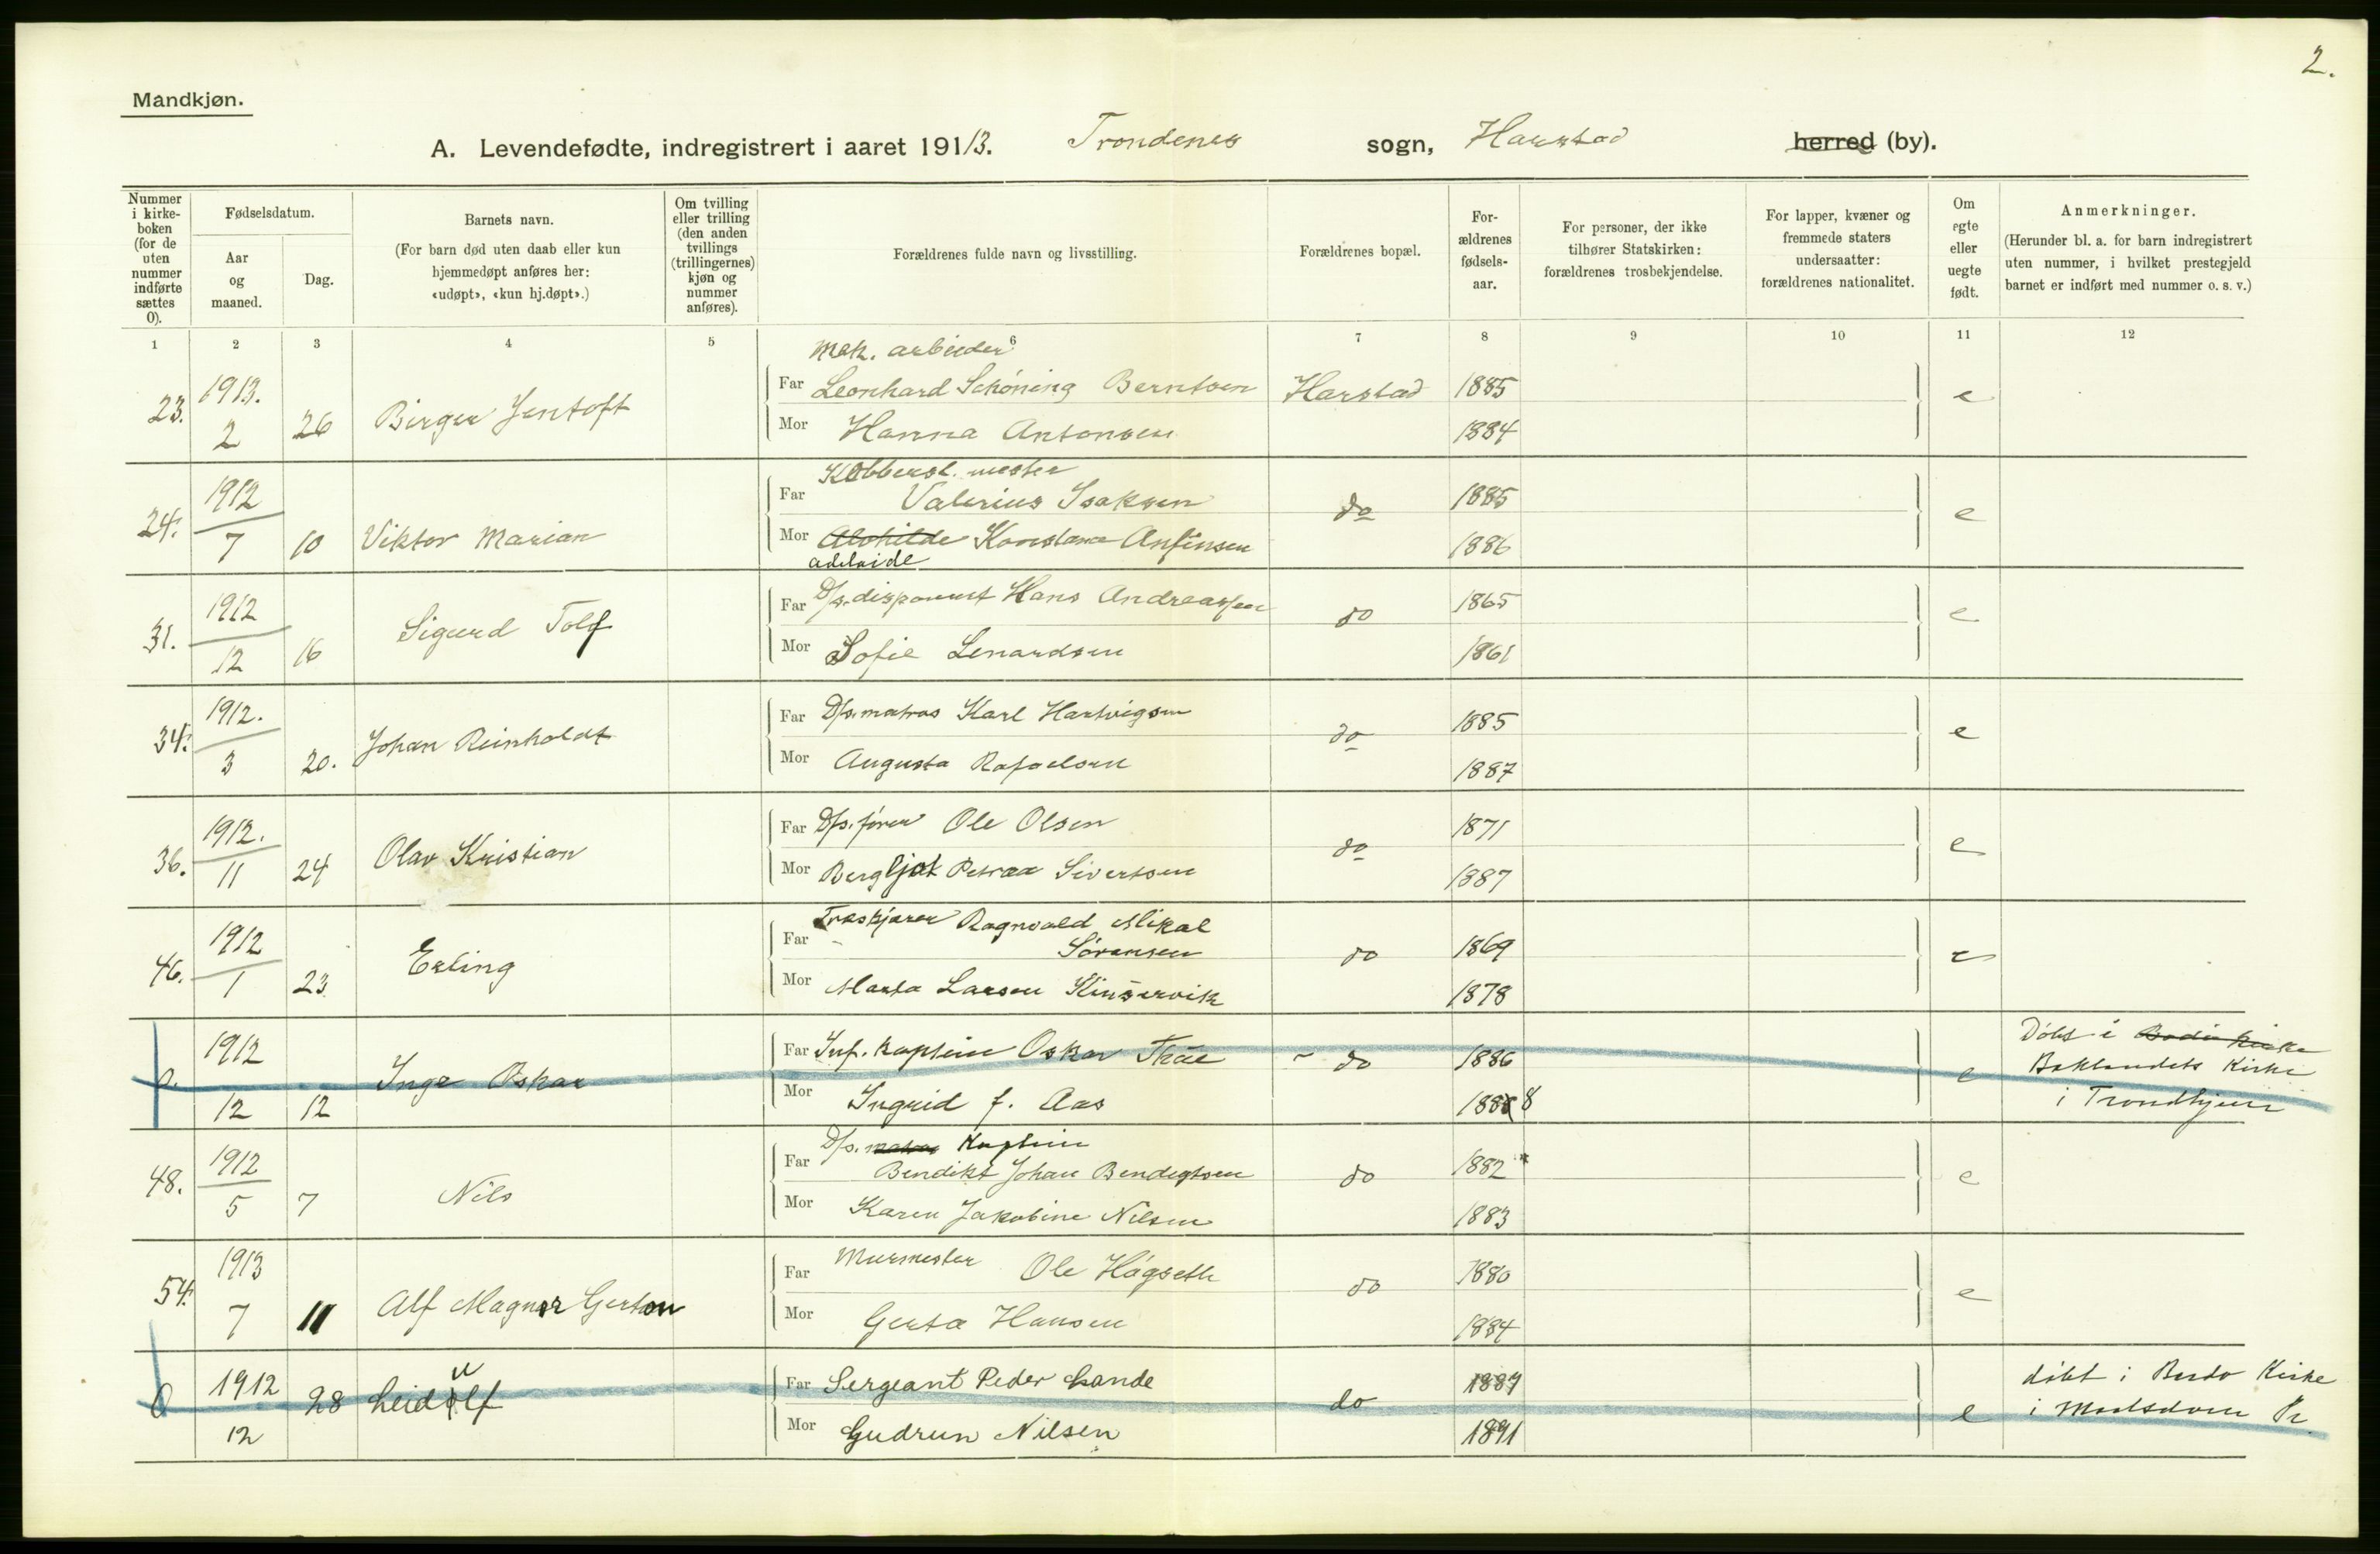 2.
Mandkjøn.
A. Levendefødte, indregistrert i aaret 1913. Trondenes sogn, Harstad herred (by).
Nummer i kirkeboken (for de uten nummer indførte sættes 0).
Fødselsdatum.
Aar og maaned.
Dag.
Barnets navn.
(For barn død uten daab eller kun hjemmedøpt anføres her: «udøpt», «kun hj.døpt».)
Om tvilling eller trilling (den anden tvillings (trillingernes) kjøn og nummer anføres).
Forældrenes fulde navn og livsstilling.
Forældrenes bopæl.
Forældrenes fødselsaar.
For personer, der ikke tilhører Statskirken: forældrenes trosbekjendelse.
For lapper, kvæner og fremmede staters undersaatter: forældrenes nationalitet.
Om egte eller uegte født.
Anmerkninger.
(Herunder bl. a. for barn indregistrert uten nummer, i hvilket prestegjeld barnet er indført med nummer o. s. v.)
1 2 3 4 5 6 7 8 9 10 11 12
Mek. arbeider
23. 1913. 2 26 Birger Jentoft Far Leonhard Schöning Berntsen Harstad 1885 e
Mor Hanna Antonsen 1884
Kobbersl. mester
24. 1912 7 10 Viktor Marian Far Valerius Isaksen do 1885 e
Mor Konstance Anfinsen 1886
Adelaide
31. 1912 12 16 Sigurd Tolf Far D/s. disponent Hans Andreassen do 1865 e
Mor Sofie Lenardsen 1861
34. 1912. 3 20. Johan Reinholdt Far D/s. matros Karl Hartvigsen do 1885 e
Mor Augusta Rafaelsen 1887
36. 1912. 11 24 Olav Kristian Far D/s. fører Ole Olsen do 1871 e
Mor Bergljot Petraa Sivertsen 1887
46. 1912 1 23 Erling Far Træskjærer Ragnvald Mikal
Sørensen do 1869 e
Mor Marta Larsen Kinservik 1878
0. 1912 12 12 Inge Oskar Far Inf. kaptein Oskar do 1886 e Døbt i Bodin Kirke
Baklandets Kirke
Mor Ingrid f. Aas 1888 i Trondhjem
D/s. matros Kaptein
48. 1912 5 7 Nils Far Bendikt Johan Bendigtsen do 1882 e
Mor Karen Jakobine Nilsen 1883
54. 1913 7 11 Alf Magnar Gerton Far Murmester Ole Høgseth do 1880 e
Mor Gerta Hansen 1884
0 1912 12 28 Leidulf Far Sergeant Peder Lande do 1887 e døbt i Kirke
i Pr
Mor Gudrun Nilsen 1891